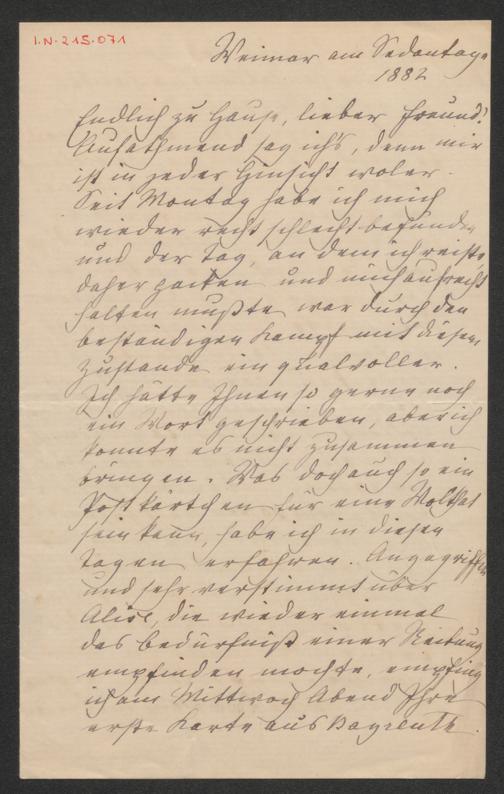 I.N. 215.071
Weimar am Sedantage
1882
Endlich zu Hause, lieber Freund!
Aufathmend sag ich's, denn mir
ist in jeder Hinsicht woler.
Seit Montag habe ich mich
wieder recht schlecht befunden
und der Tag, an dem ich reiste,
daher packen und mich aufrecht
halten mußte war durch den
beständigen Kampf mit diesem
Zustande ein qualvoller.
Ich hätte Ihnen so gerne noch
ein Wort geschrieben, aber ich
konnte es nicht zusammen
bringen. Was doch auch so ein
Postkärtchen für eine Wolthat
sein kann, habe ich in diesen
Tagen erfahren. Angegriffen
und sehr verstimmt über
Alise, die wieder einmal
das Bedürfniß einer
empfinden mochte, empfing
ich am Mittwoch Abend Ihre
erste Karte aus Bayreuth.